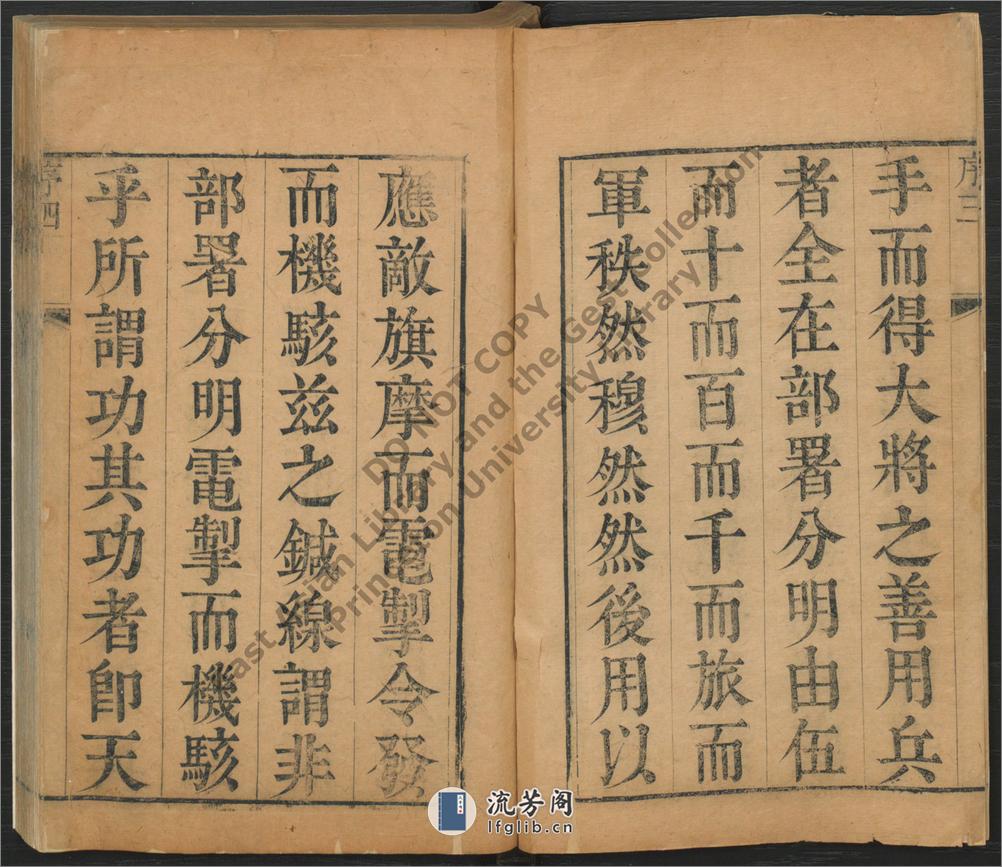 序三
手而得大將之善用兵
者全在部署分明由伍
而十而百而千而旅而
軍秩然穆然然後用以
應敵旗摩而電掣令發
而機駭茲之鍼線謂非
部署分明電掣而機駭
乎所謂功其功者卽天
序四
DO NOT COPY
East Asian Library and the Gest Collection
Princeton University Library
流芳阁
lfglib.cn